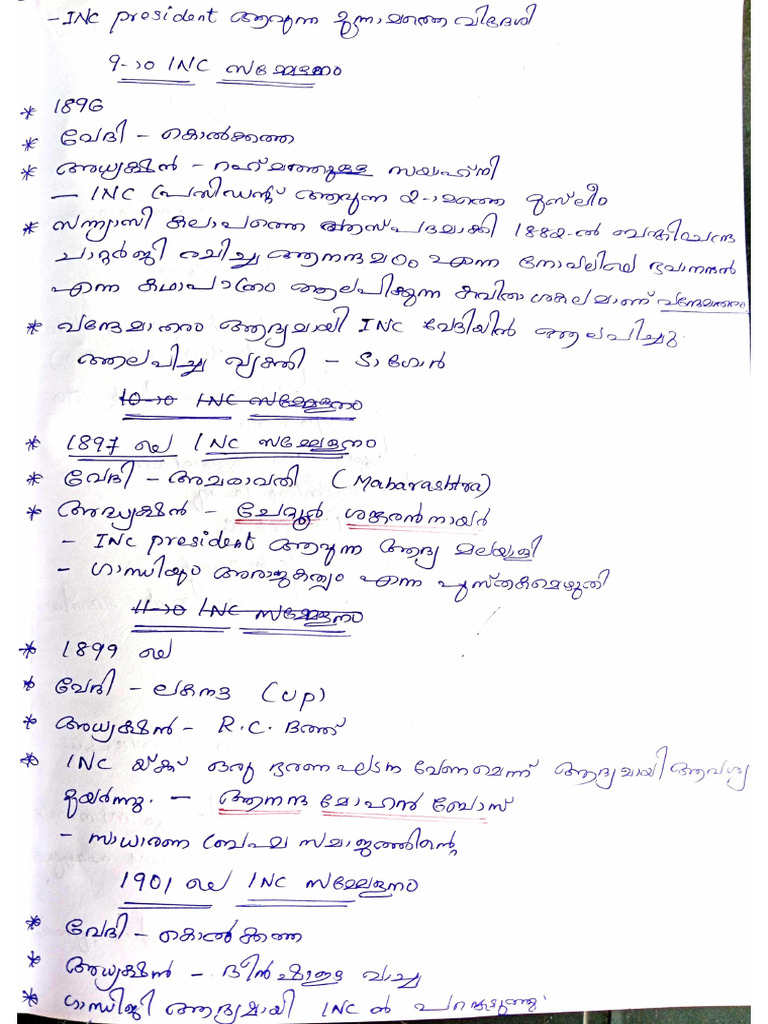 - INC president ആവുന്ന മൂന്നാമത്തെ വിദേശി
9-ാo INC സമ്മേളനം
* 1896
* വേദി - കൊൽക്കത്ത
* അധ്യക്ഷൻ - റഹ്മത്തുള്ള സയാഹ്നി
- INC പ്രസിഡന്റ് ആവുന്ന 2-ാമത്തെ മുസ്ലീം
* സന്ന്യാസി കലാപത്തെ ആസ്പദമാക്കി 1882-ൽ ബങ്കിംചന്ദ്ര
ചാറ്റർജി രചിച്ച ആനന്ദമഠം എന്ന നോവലിലെ ഭവാനന്ദൻ
എന്ന കഥാപാത്രം ആലപിക്കുന്ന കവിതാശകലമാണ് വന്ദേമാതരം
* വന്ദേമാതരം ആദ്യമായി INC വേദിയിൽ ആലപിച്ചു.
ആലപിച്ച വ്യക്തി - ടാഗോർ
10-ാo INC സമ്മേളനം
* 1897 ലെ INC സമ്മേളനം
* വേദി - അമരാവതി (Maharashtra)
* അദ്ധ്യക്ഷൻ - ചേറ്റൂർ ശങ്കരൻ നായർ
- INC president ആവുന്ന ആദ്യ മലയാളി
- ഗാന്ധിയും അരാജകത്വം എന്ന പുസ്തകമെഴുതി
11-ാo INC സമ്മേളനം
* 1899 ലെ
* വേദി - ലക്നൗ (UP)
* അധ്യക്ഷൻ - R.C. ദത്ത്
* INC യ്ക്ക് ഒരു ഭരണഘടന വേണമെന്ന് ആദ്യമായി ആവശ്യ
മുയർന്നു. - ആനന്ദ മോഹൻ ബോസ്
- സാധാരണ ബ്രഹ്മ സമാജത്തിന്റെ
1901 ലെ INC സമ്മേളനം
* വേദി - കൊൽക്കത്ത
* അധ്യക്ഷൻ - ദിൻഷാഇട വാച്ച
* ഗാന്ധിജി ആദ്യമായി INC ൽ പങ്കെടുത്തു.